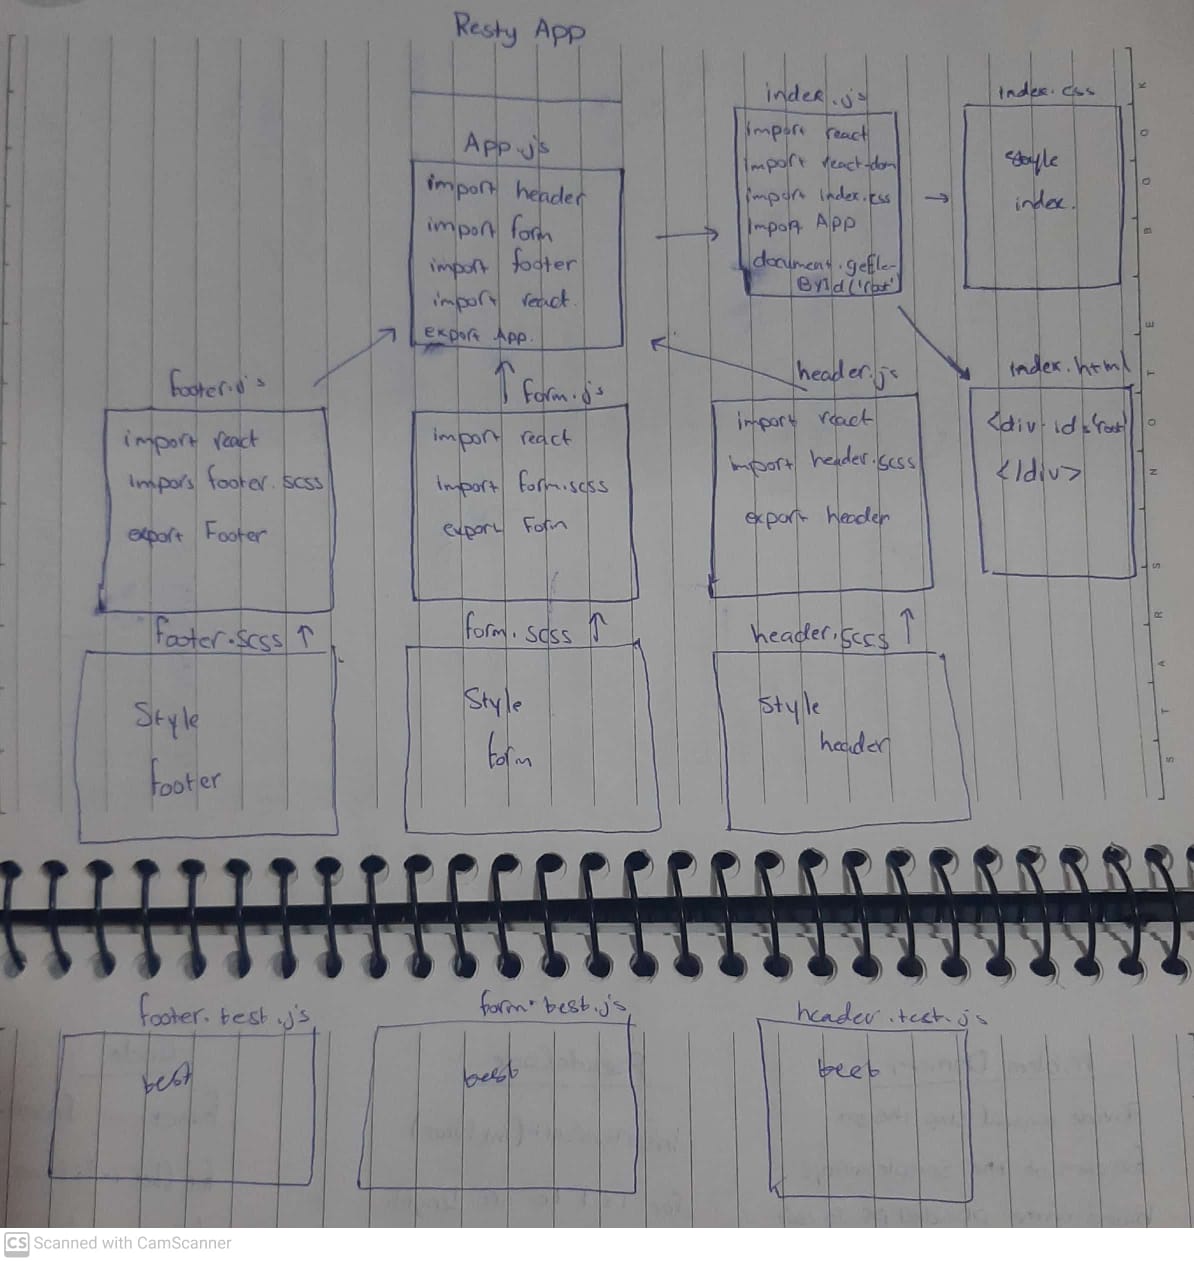 Resty App
App.js
import header
import form
import footer
import react
export App.
index.js
import react
import react-dom
import index.css
import APP
document.getEle-
ById('root')
index.css
style
index.
footer.js
import react
impors footer.scss
export Footer
form.js
import react
import form.scss
export Form
header.js
import react
import header.scss
export header
index.html
<div id='root'
</div>
footer.scss
Style
footer
form.scss
Style
form
header.scss
Style
header
footer.test.js
test
form.test.js
test
header.test.js
test
CS Scanned with CamScanner